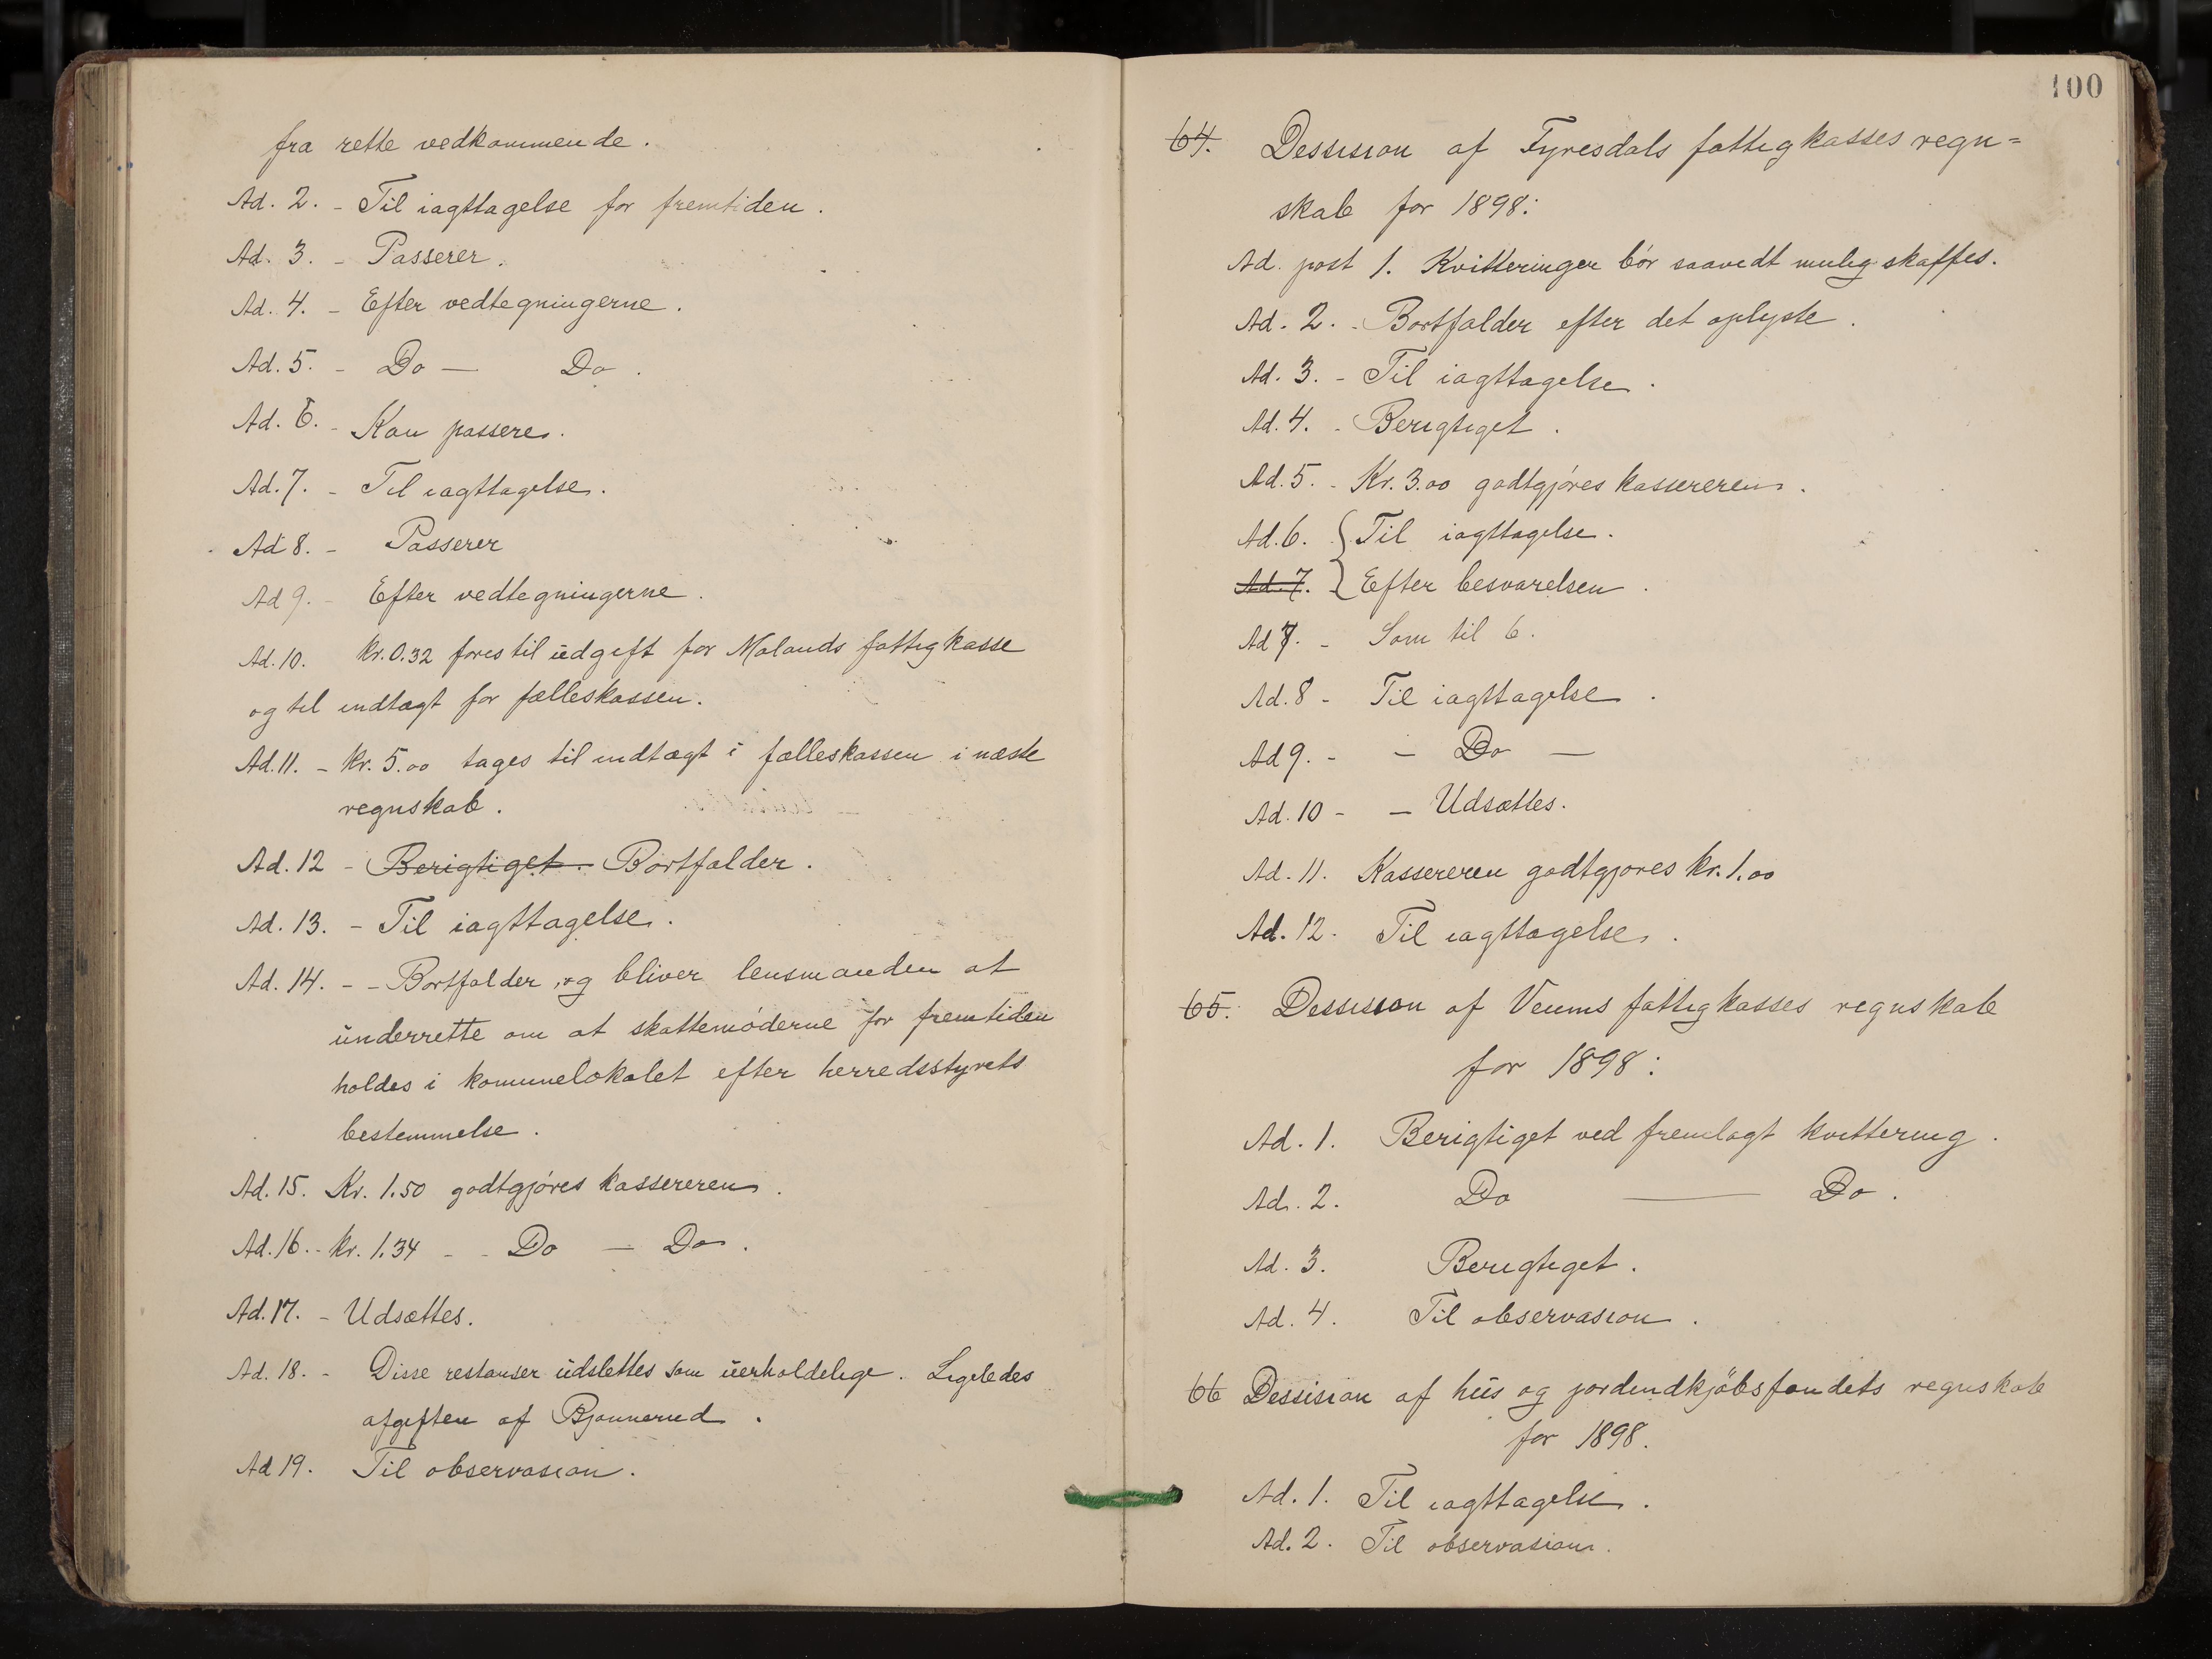 fra rette vedkommende.
Ad. 2. - Til iagttagelse for fremtiden.
Ad. 3. - Passerer.
Ad. 4. - Efter vedtegningerne.
Ad. 5. - Do — Do.
Ad. 6. - Kan passere.
Ad. 7. - Til iagttagelse.
Ad 8. - Passerer
Ad 9. - Efter vedtegningerne.
Ad. 10. kr. 0.32 føres til udgift for Molands fattigkasse
og til indtægt for fælleskassen.
Ad. 11. - kr. 5.00 tages til indtægt i fælleskassen i næste
regnskab.
Ad. 12 - Berigtiget. Bortfalder.
Ad. 13. - Til iagttagelse.
Ad. 14. - - Bortfalder, og bliver lensmanden at
underrette om at skattemøderne for fremtiden
holdes i komunelokalet efter herredsstyrets
bestemmelse.
Ad. 15. Kr. 1.50 godtgjøres kassereren.
Ad. 16. - kr. 1.34 - - Do — Do.
Ad. 17. - Udsættes.
Ad. 18. - Disse restanser udslettes som uerholdelige. Ligeledes
afgiften af Bjønnerud.
Ad 19. Til observasion.
100
64. Dessision af Fyresdals fattigkasses regn=
skab for 1898:
Ad. post 1. Kvitteringer bør saavidt mulig skaffes.
Ad. 2. - Bortfalder efter det oplyste.
Ad. 3. - Til iagttagelse.
Ad. 4. - Berigtiget.
Ad. 5. - Kr. 3.00 godtgjøres kassereren.
Ad. 6. { Til iagttagelse.
Ad. 7. } Efter besvarelsen.
Ad 7. - Som til 6.
Ad. 8 - Til iagttagelse.
Ad 9. - - Do —
Ad. 10 - - Udsættes.
Ad. 11. Kassereren godtgjøres kr. 1.00
Ad. 12. Til iagttagelse.
65. Dessision af Veums fattigkasses regnskab
for 1898:
Ad. 1. Berigtiget ved fremlagt kvittering.
Ad. 2. Do — Do.
Ad. 3. Berigtiget.
Ad. 4. Til observasion.
66 Dessision af hus og jordindkjøbsfondets regnskab
for 1898.
Ad. 1. Til iagttagelse.
Ad. 2. Til observasion.